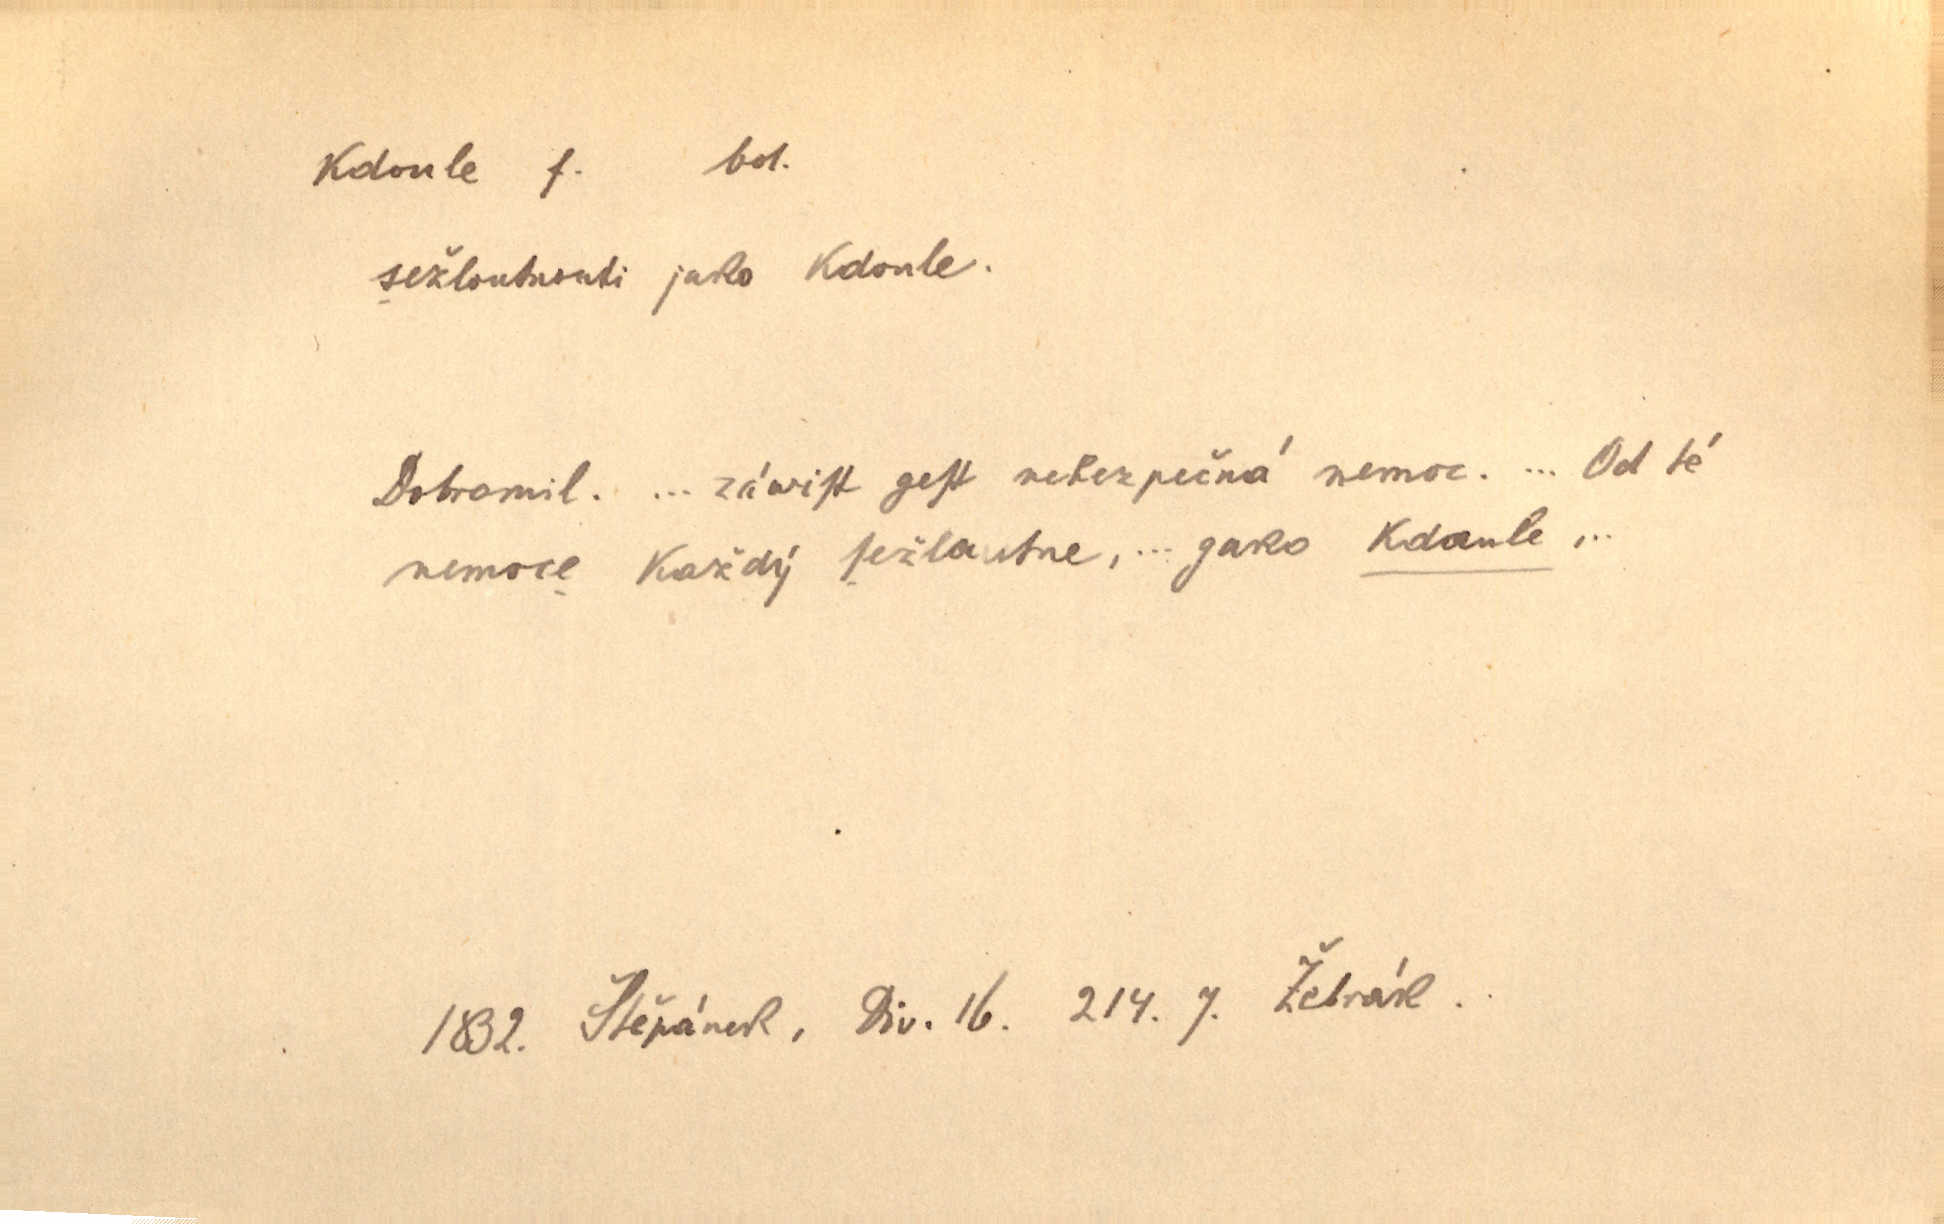 kdoule f. bot.
sežloutnouti jako kdoule.
Dobromil. ... záwiſt geſt nebezpečná nemoc. ... Od té
nemoce každý ſežlautne, ... gako kdaule ,..
1832. Štěpánek, Div. 16. 214. 7. Žebrák.